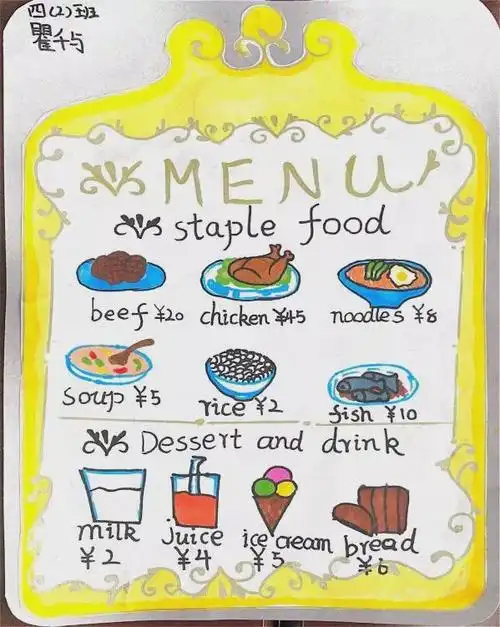 四(2)班
瞿千与
MENU
staple food
beef ¥20 chicken ¥45 noodles ¥8
soup ¥5 rice ¥2 fish ¥10
Dessert and drink
milk juice ice cream bread
¥2 ¥4 ¥5 ¥6